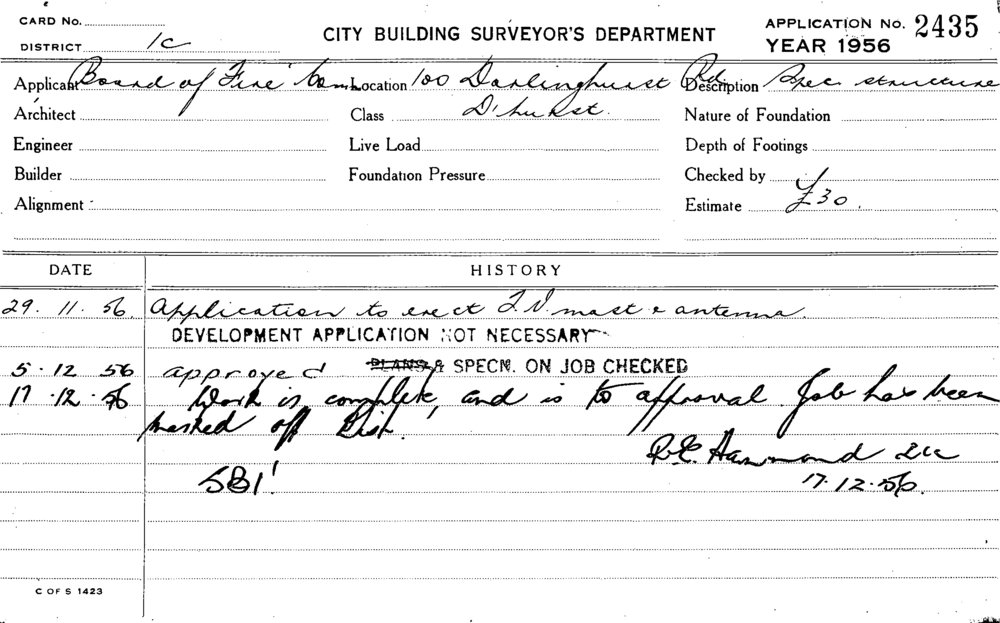 CARD No.
DISTRICT 1C
CITY BUILDING SURVEYOR'S DEPARTMENT
APPLICATION No. 2435
YEAR 1956
Applicant Board of Fire Comm Location 100 Darlinghurst Rd Description Spec structure
Architect Class D'hurst. Nature of Foundation
Engineer Live Load Depth of Footings
Builder Foundation Pressure Checked by
Alignment Estimate £30.
DATE HISTORY
29. 11. 56. Application to erect T.V. mast & antenna.
DEVELOPMENT APPLICATION NOT NECESSARY
5. 12 56 approved PLANS & SPECN. ON JOB CHECKED
17. 12. 56 Work is complete, and is to approval. Job has been
marked off
R.E. Hammond
SB1 17.12.56.
C OF S 1423